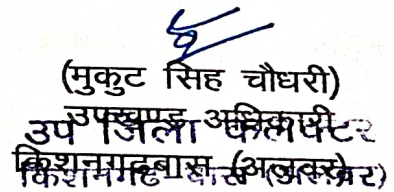 (मुकुट सिंह चौधरी)
उपखण्ड अधिकारी
उप जिला कलेक्टर
किशनगढ़बास (अलवर)
किशनगढ़ बास (अलवर)